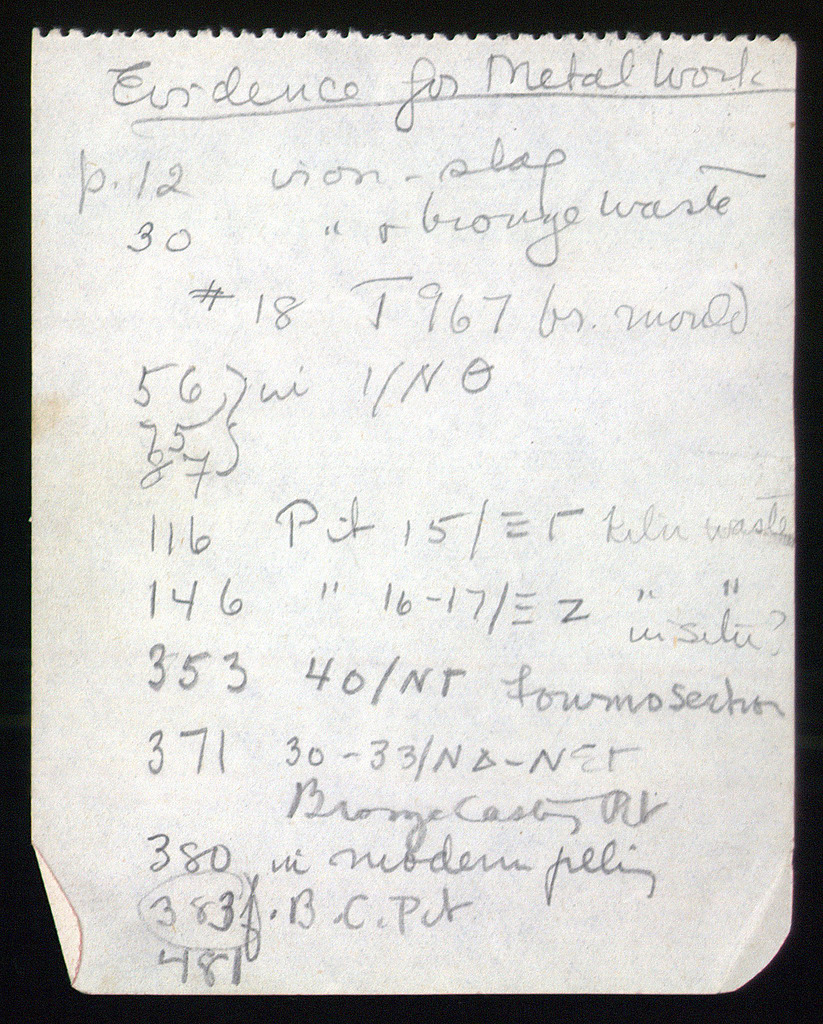 Evidence for Metal Work
p. 12 iron-slag
30 " + bronze waste
# 18 T 967 br. mould
56 } in 1/ΝΘ
75
87
116 Pit 15/ΞΓ kiln waste
146 " 16-17/ΞΖ " "
in situ?
353 40/ΝΓ section
371 30-33/ΝΔ-ΝΕΓ
Bronze Casting Pit
380 in modern filling
383f. B.C. Pit
481